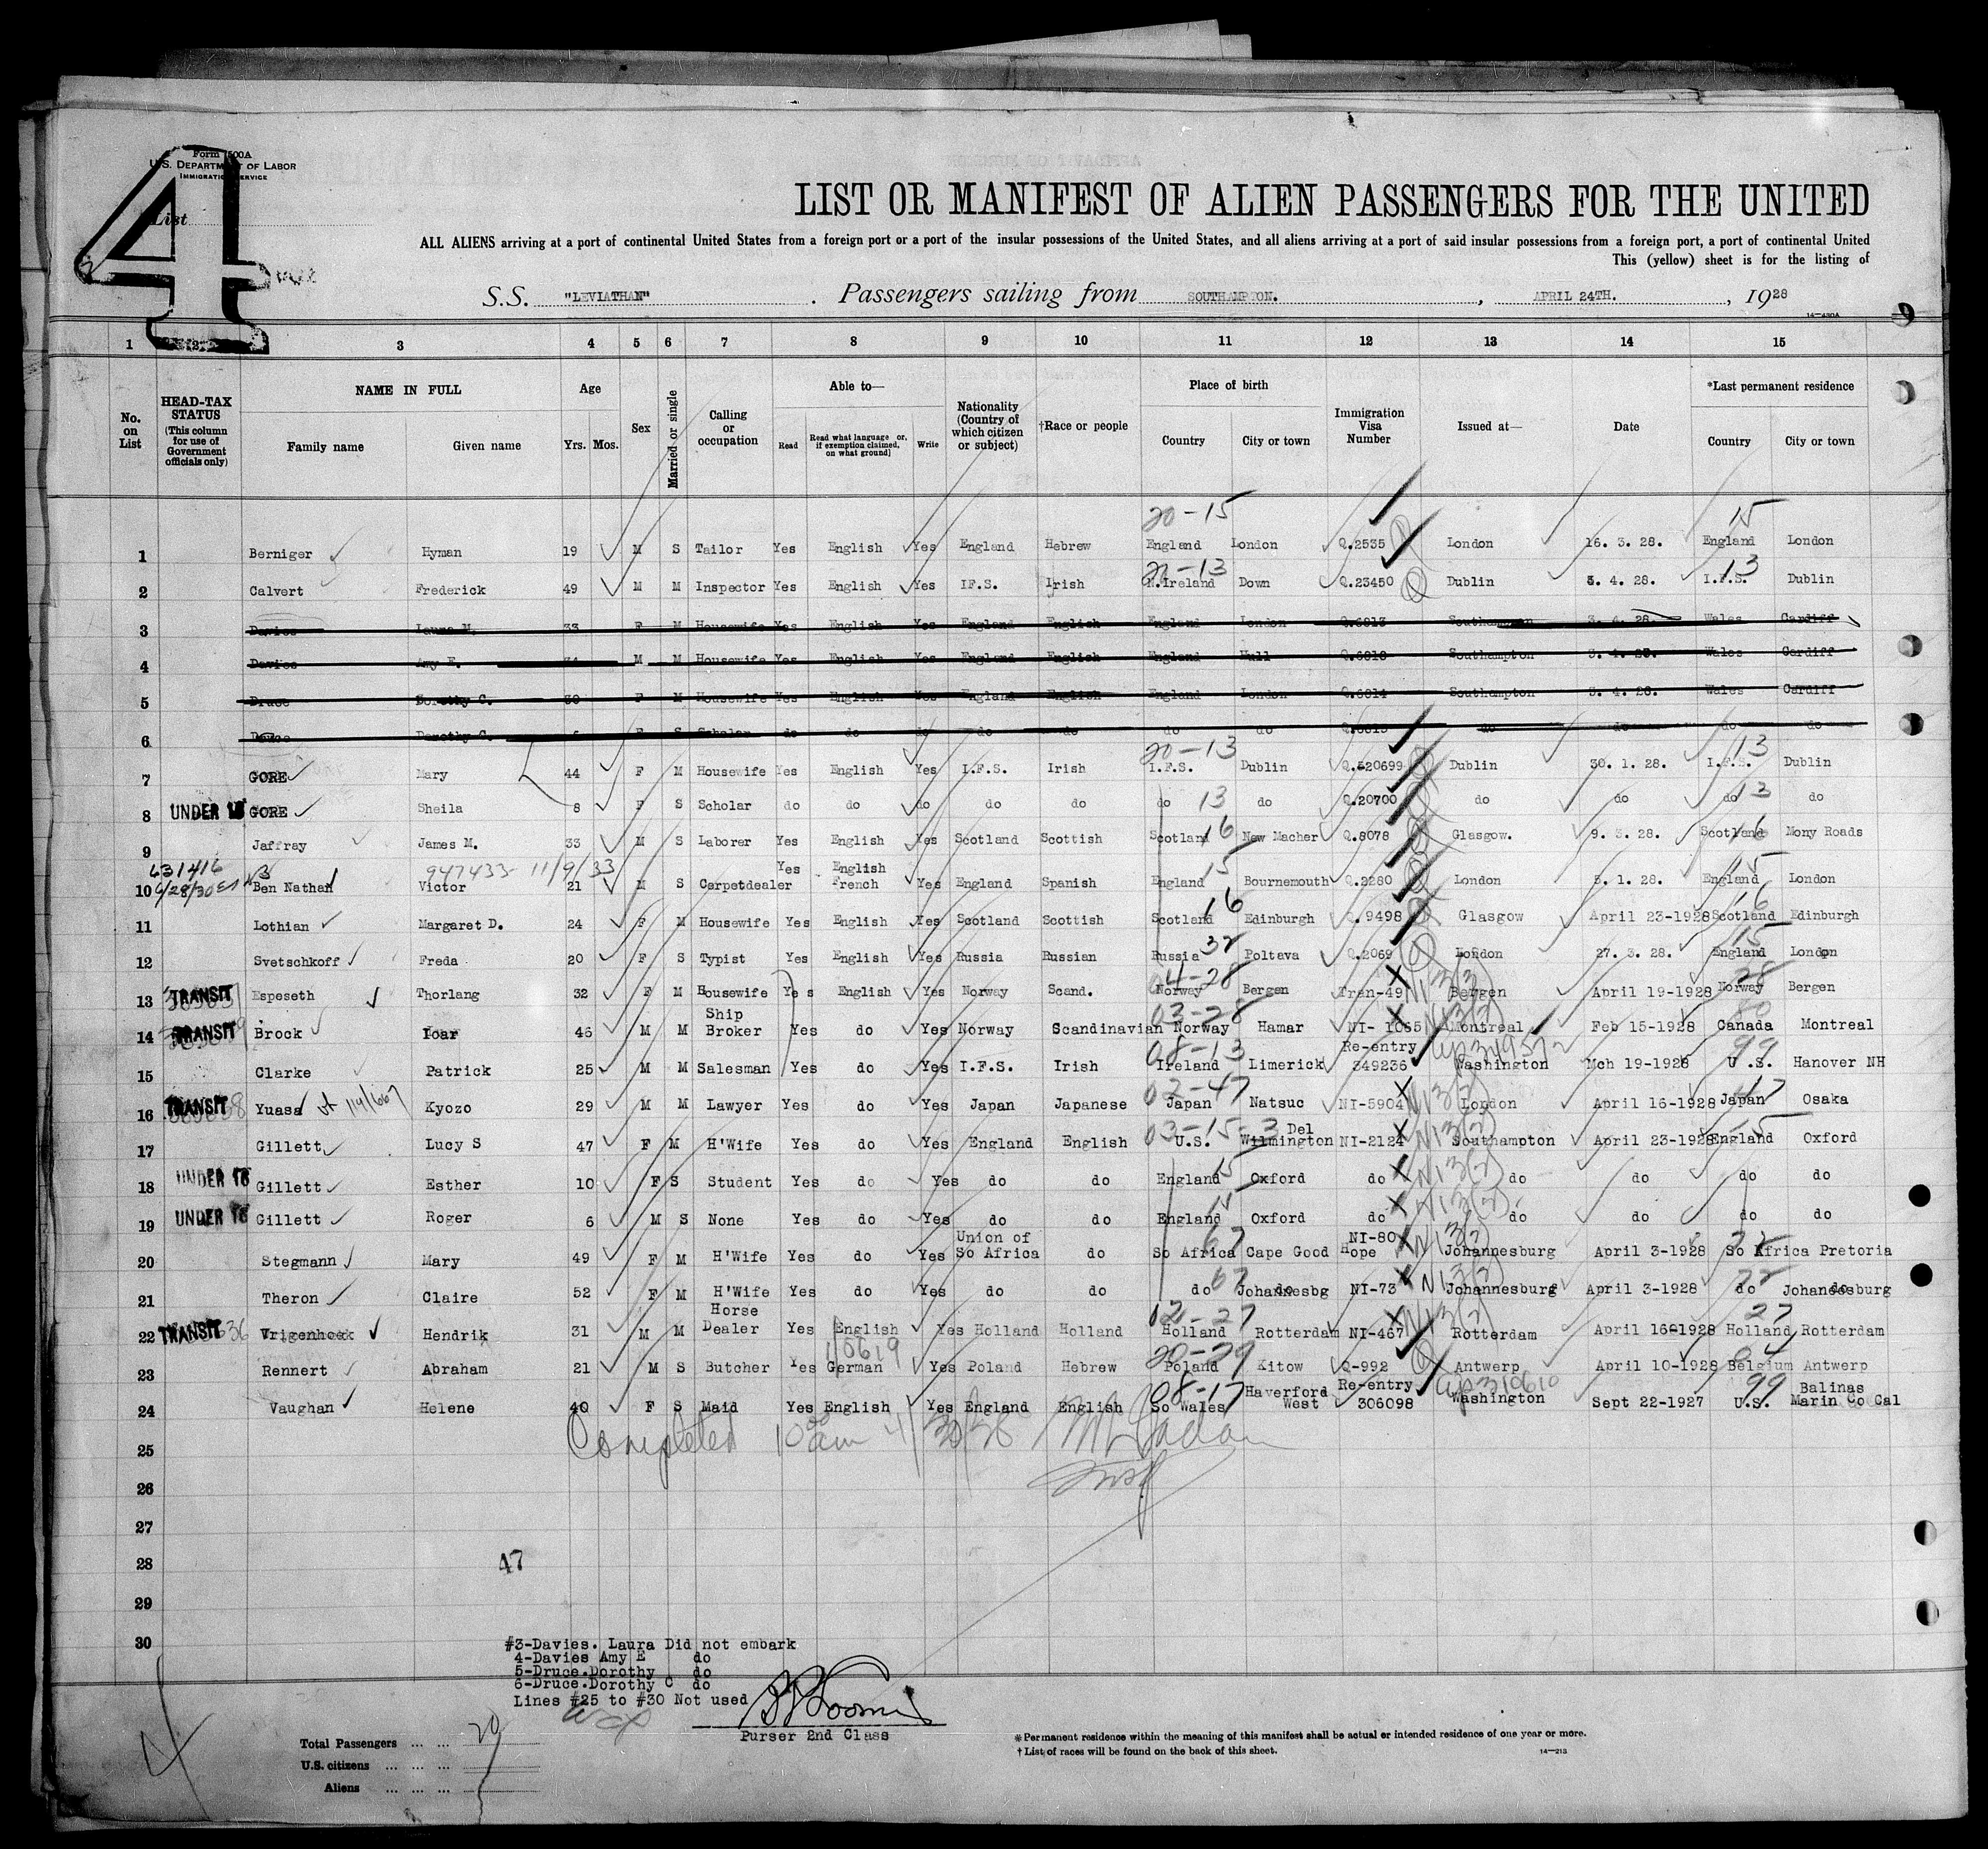 Form 500A
U.S. DEPARTMENT OF LABOR
IMMIGRATION SERVICE
List
4
LIST OR MANIFEST OF ALIEN PASSENGERS FOR THE UNITED
ALL ALIENS arriving at a port of continental United States from a foreign port or a port of the insular possessions of the United States, and all aliens arriving at a port of said insular possessions from a foreign port, a port of continental United
This (yellow) sheet is for the listing of
S.S. "LEVIATHAN" . Passengers sailing from SOUTHAMPTON. , APRIL 24TH. , 1928
14-430A
9
1 2 3 4 5 6 7 8 9 10 11 12 13 14 15
No. on List
HEAD-TAX STATUS (This column for use of Government officials only)
NAME IN FULL
Family name Given name
Age
Yrs. Mos.
Sex
Married or single
Calling or occupation
Able to—
Read Read what language or, if exemption claimed, on what ground) Write
Nationality (Country of which citizen or subject)
†Race or people
Place of birth
Country City or town
Immigration Visa Number
Issued at—
Date
*Last permanent residence
Country City or town
20-15 15
1 Berniger Hyman 19 M S Tailor Yes English Yes England Hebrew England London Q.2535 London 16. 3. 28. England London
20-13 13
2 Calvert Frederick 49 M M Inspector Yes English Yes IF.S. Irish N.Ireland Down Q.23450 Q Dublin 3. 4. 28. I.F.S. Dublin
3 Davies Laura M. 33 F M Housewife Yes English Yes England English England London Q.6813 Southampton 3. 4. 28. Wales Cardiff
4 Davies Amy E. M M Housewife Yes English Yes England English England Hull Southampton 3. 4. 28. Wales Cardiff
5 Druce Dorothy C. 30 F M Housewife Yes English Yes England English England London Q.6814 Southampton 3. 4. 28. Wales Cardiff
6 Druce Dorothy C. F S Scholar do do do do do do do Q.6815 do do do do
20-13 13
7 GORE Mary 44 F M Housewife Yes English Yes I.F.S. Irish I.F.S. Dublin Q.520699 Dublin 30. 1. 28. I.F.S. Dublin
8 UNDER 16 GORE Sheila 8 F S Scholar do do do do do do 13 do Q.20700 do do do 13 do
9 Jaffray James M. 33 M S Laborer Yes English Yes Scotland Scottish Scotland 16 New Macher Q.8078 Glasgow. 9. 3. 28. Scotland 16 Mony Roads
631416 947433- 11/9/33 Yes English 15 15
10 6/28/30 Ben Nathan Victor 21 M S Carpetdealer French Yes England Spanish England Bournemouth Q.2280 London 3. 1. 28. England London
11 Lothian Margaret D. 24 F M Housewife Yes English Yes Scotland Scottish Scotland 16 Edinburgh Q.9498 Glasgow April 23-1928 Scotland 16 Edinburgh
12 Svetschkoff Freda 20 F S Typist Yes English Yes Russia Russian Russia 32 Poltava Q.2069 Q London 27. 3. 28. England 15 London
04-28 28
13 TRANSIT Espeseth Thorlang 32 F M Housewife Yes English Yes Norway Scand. Norway Bergen Tran-49 N13(3) Bergen April 19-1928 Norway Bergen
Ship 03-28 80
14 TRANSIT Brock Ioar 46 M M Broker Yes do Yes Norway Scandinavian Norway Hamar NI- 1065 N13(2) Montreal Feb 15-1928 Canada Montreal
08-13 Re-entry 99
15 Clarke Patrick 25 M M Salesman Yes do Yes I.F.S. Irish Ireland Limerick 349236 Washington Mch 19-1928 U .S. Hanover NH
02-47 47
16 TRANSIT Yuasa Kyozo 29 M M Lawyer Yes do Yes Japan Japanese Japan Natsuc NI-5904 London April 16-1928 Japan Osaka
03-15-3 Del 15
17 Gillett Lucy S 47 F M H'Wife Yes do Yes England English U.S. Wilmington NI-2124 N13(2) Southampton April 23-1928 England Oxford
18 UNDER 16 Gillett Esther 10 F S Student Yes do Yes do do England 15 Oxford do N13(2) do do do do
19 UNDER 16 Gillett Roger 6 M S None Yes do Yes do do England 15 Oxford do N13(2) do do do do
Union of 67 NI-80
20 Stegmann Mary 49 F M H'Wife Yes do Yes So Africa do So Africa Cape Good Hope N13(2) Johannesburg April 3-1928 So Africa Pretoria
21 Theron Claire 52 F M H'Wife Yes do Yes do do do 67 Johannesbg NI-73 N13(2) Johannesburg April 3-1928 do Johannesburg
Horse 02-27 27
22 TRANSIT Vrigenhoek Hendrik 31 M M Dealer Yes English Yes Holland Holland Holland Rotterdam NI-467 N13(2) Rotterdam April 16-1928 Holland Rotterdam
110619 20-29
23 Rennert Abraham 21 M S Butcher Yes German Yes Poland Hebrew Poland Kitow Q-992 Q Antwerp April 10-1928 Belgium Antwerp
08-17 Haverford Re-entry 99 Balinas
24 Vaughan Helene 40 F S Maid Yes English Yes England English So Wales West 306098 Washington Sept 22-1927 U.S. Marin Co Cal
25 Completed 10 00 am 4/30/28
26
27
28 47
29
30
#3-Davies. Laura Did not embark
4-Davies Amy E do
5-Druce.Dorothy do
6-Druce.Dorothy C do
Lines #25 to #30 Not used
Purser 2nd Class
Total Passengers ... ... 20
U.S. citizens ... ... ...
Aliens ... ... ...
4
* Permanent residence within the meaning of this manifest shall be actual or intended residence of one year or more.
† List of races will be found on the back of this sheet. 14-213